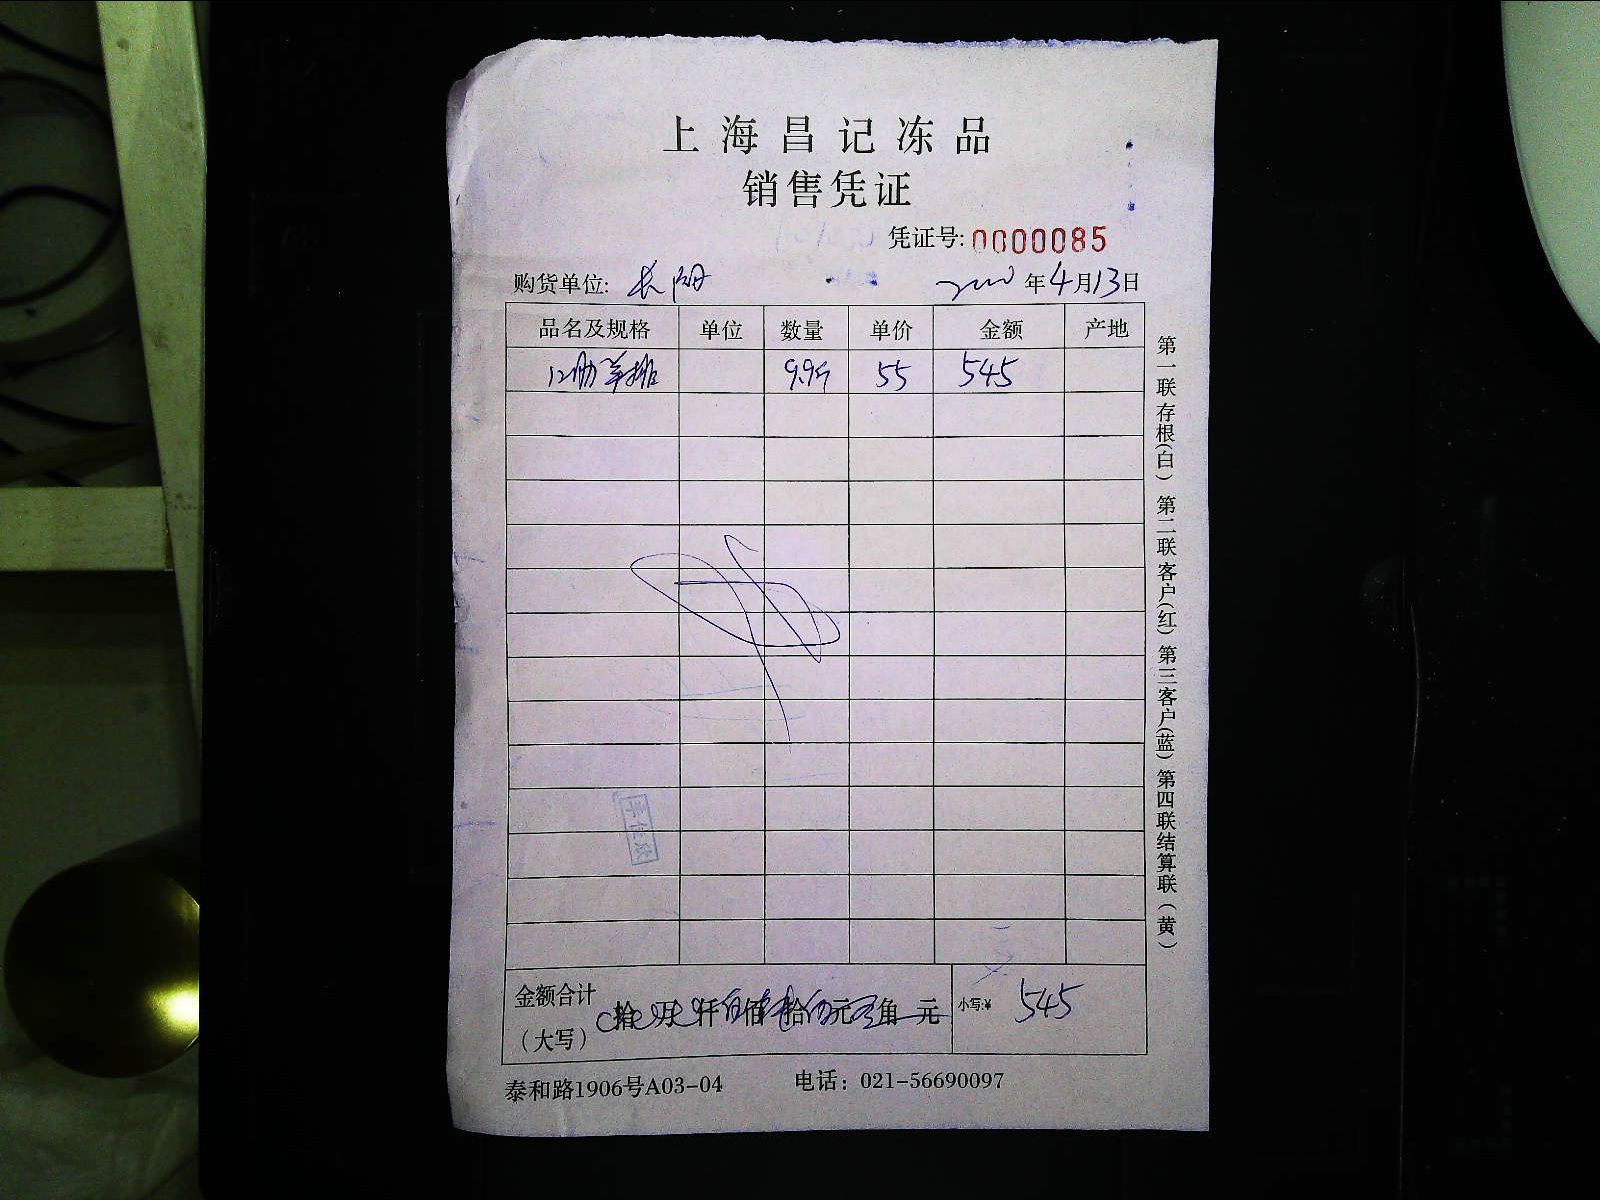 上海昌记冻品
销售凭证
凭证号:0000085
购货单位: 长 年4月13日
品名及规格 单位 数量 单价 金额 产地
12肋羊排 9.9斤 55 545
金额合计 拾 万 仟 佰 拾 元 角 元 小写:¥ 545
(大写)
泰和路1906号A03-04 电话：021-56690097
第一联存根(白) 第二联客户(红) 第三客户(蓝) 第四联结算联(黄)